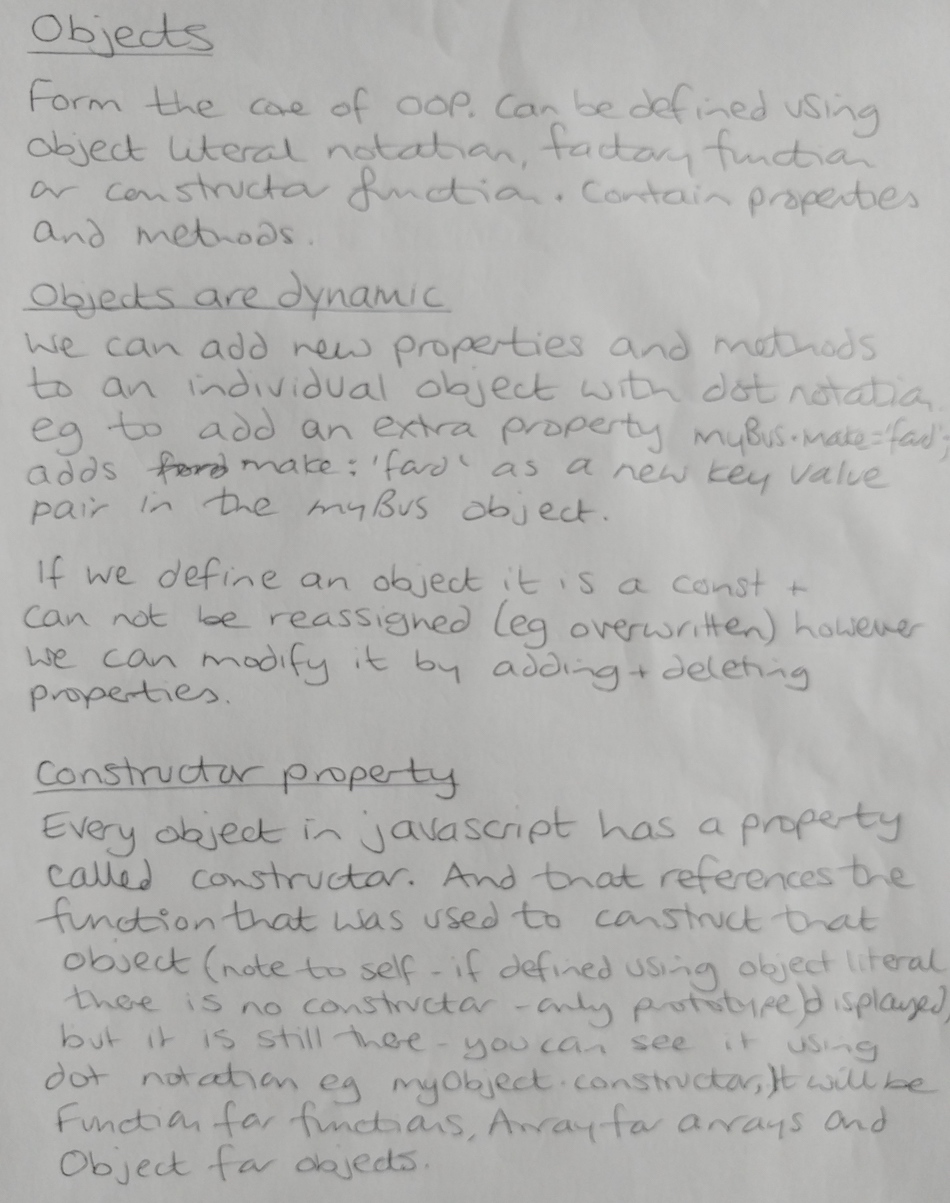 Objects
Form the core of OOP. Can be defined using
object literal notation, factory function
or constructor function. Contain properties
and methods.
Objects are dynamic
We can add new properties and methods
to an individual object with dot notation.
eg to add an extra property myBus.make='ford';
adds ford make: 'ford' as a new key value
pair in the myBus object.
If we define an object it is a const +
can not be reassigned (eg overwritten) however
we can modify it by adding + deleting
properties.
Constructor property
Every object in javascript has a property
called constructor. And that references the
function that was used to construct that
object (note to self - if defined using object literal
there is no constructor - only prototype) displayed,
but it is still there - you can see it using
dot notation eg myObject.constructor,) It will be
Function for functions, Array for arrays and
Object for objects.